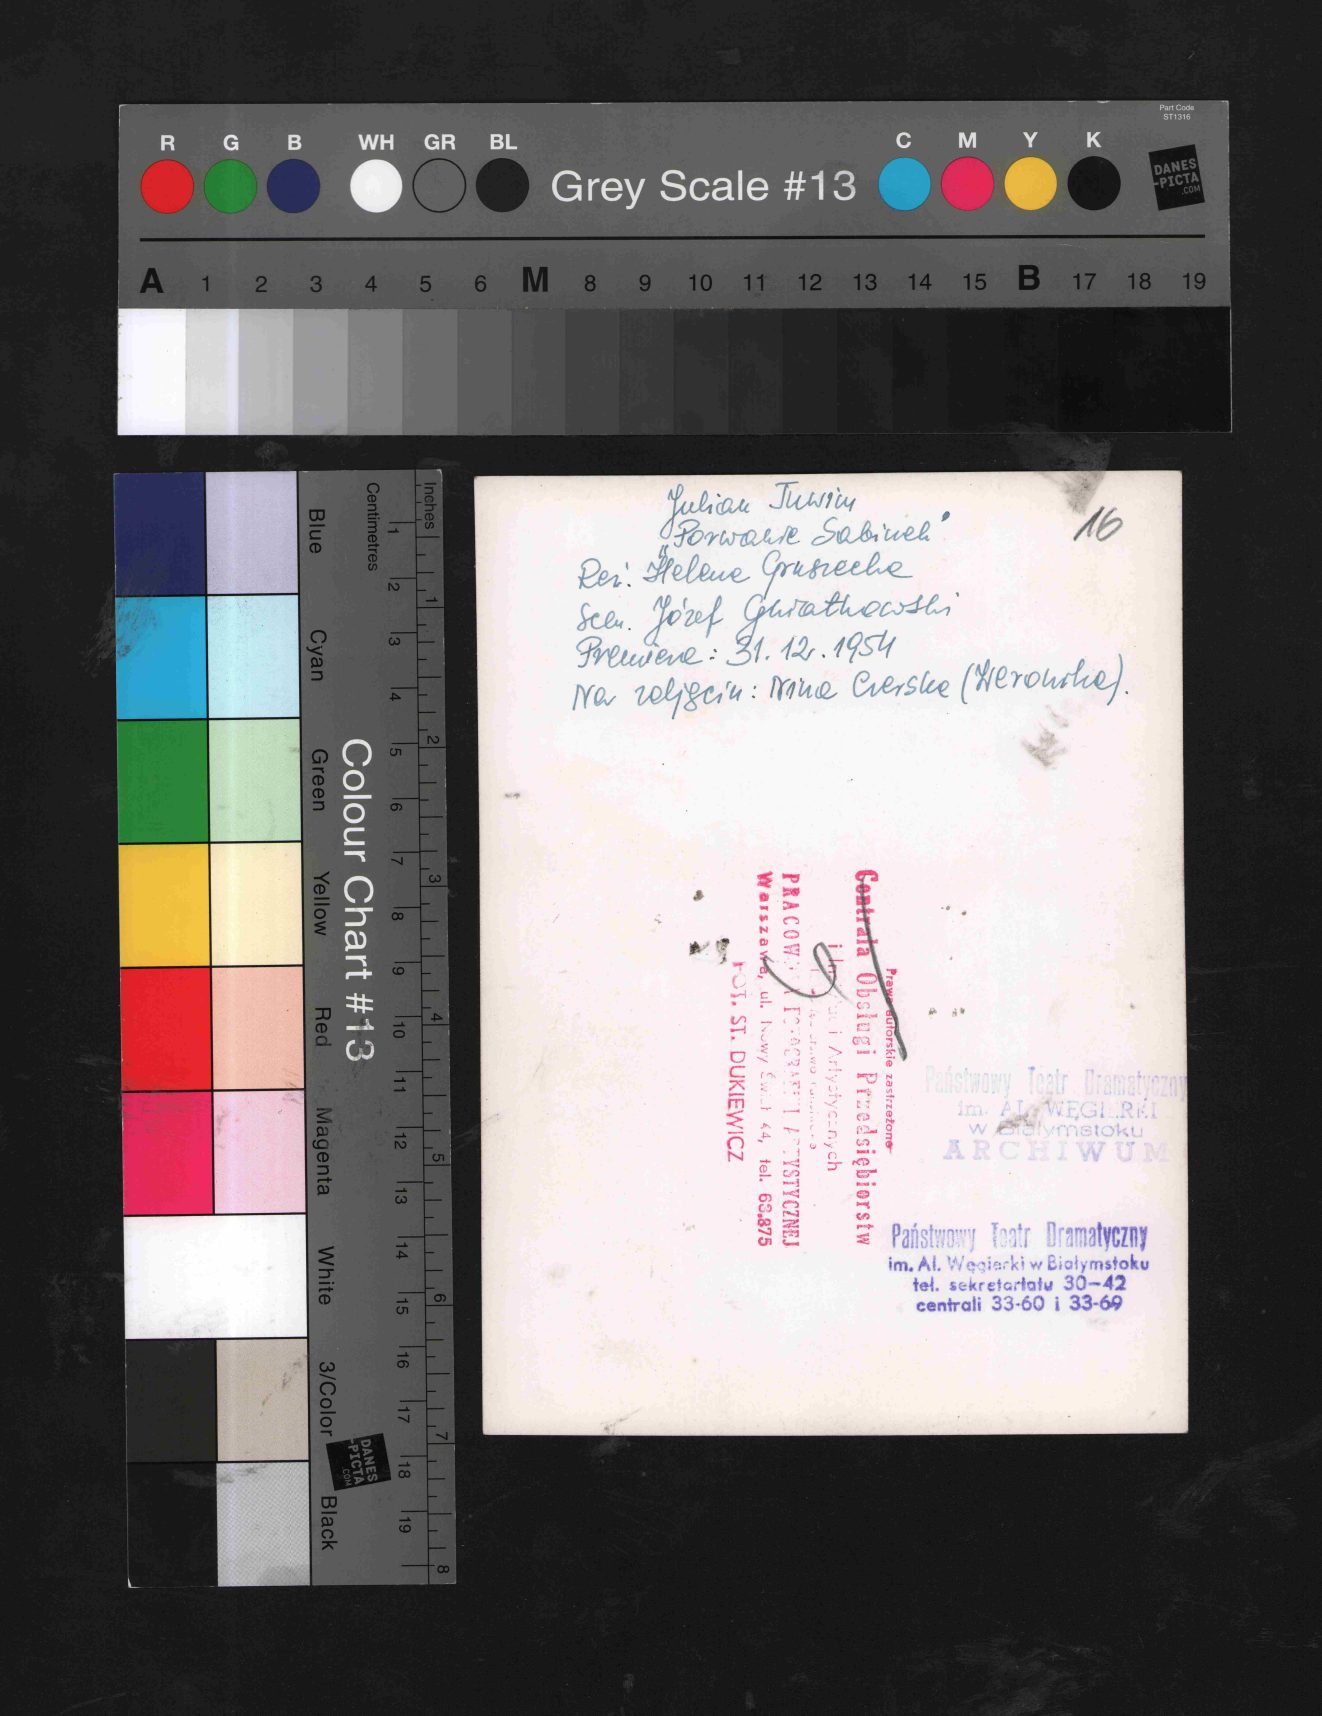 Part Code
ST1316
R G B WH GR BL
Grey Scale #13
C M Y K
DANES
-PICTA
.COM
A 1 2 3 4 5 6 M 8 9 10 11 12 13 14 15 B 17 18 19
Colour Chart #13
Blue
Cyan
Green
Yellow
Red
Magenta
White
3/Color
Black
Centimetres
1 2 3 4 5 6 7 8 9 10 11 12 13 14 15 16 17 18 19
Inches
1 2 3 4 5 6 7 8
DANES
-PICTA
.COM
16
Julian Tuwim
"Porwanie Sabinek"
Reż. Helena Gruszecka
Scen. Józef Gwiatkowski
Premiera: 31.12.1954
Na zdjęciu: Nina Czerska (Werońska).
Prawa autorskie zastrzeżone
Centrala Obsługi Przedsiębiorstw
i Artystycznych
PRACOWNIA FOTOGRAFII ARTYSTYCZNEJ
Warszawa, ul. Nowy Świat 44, tel. 63.875
FOT. ST. DUKIEWICZ
Państwowy Teatr Dramatyczny
im. AL. WĘGIERKI
w Białymstoku
ARCHIWUM
Państwowy Teatr Dramatyczny
im. Al. Węgierki w Białymstoku
tel. sekretariatu 30-42
centrali 33-60 i 33-69